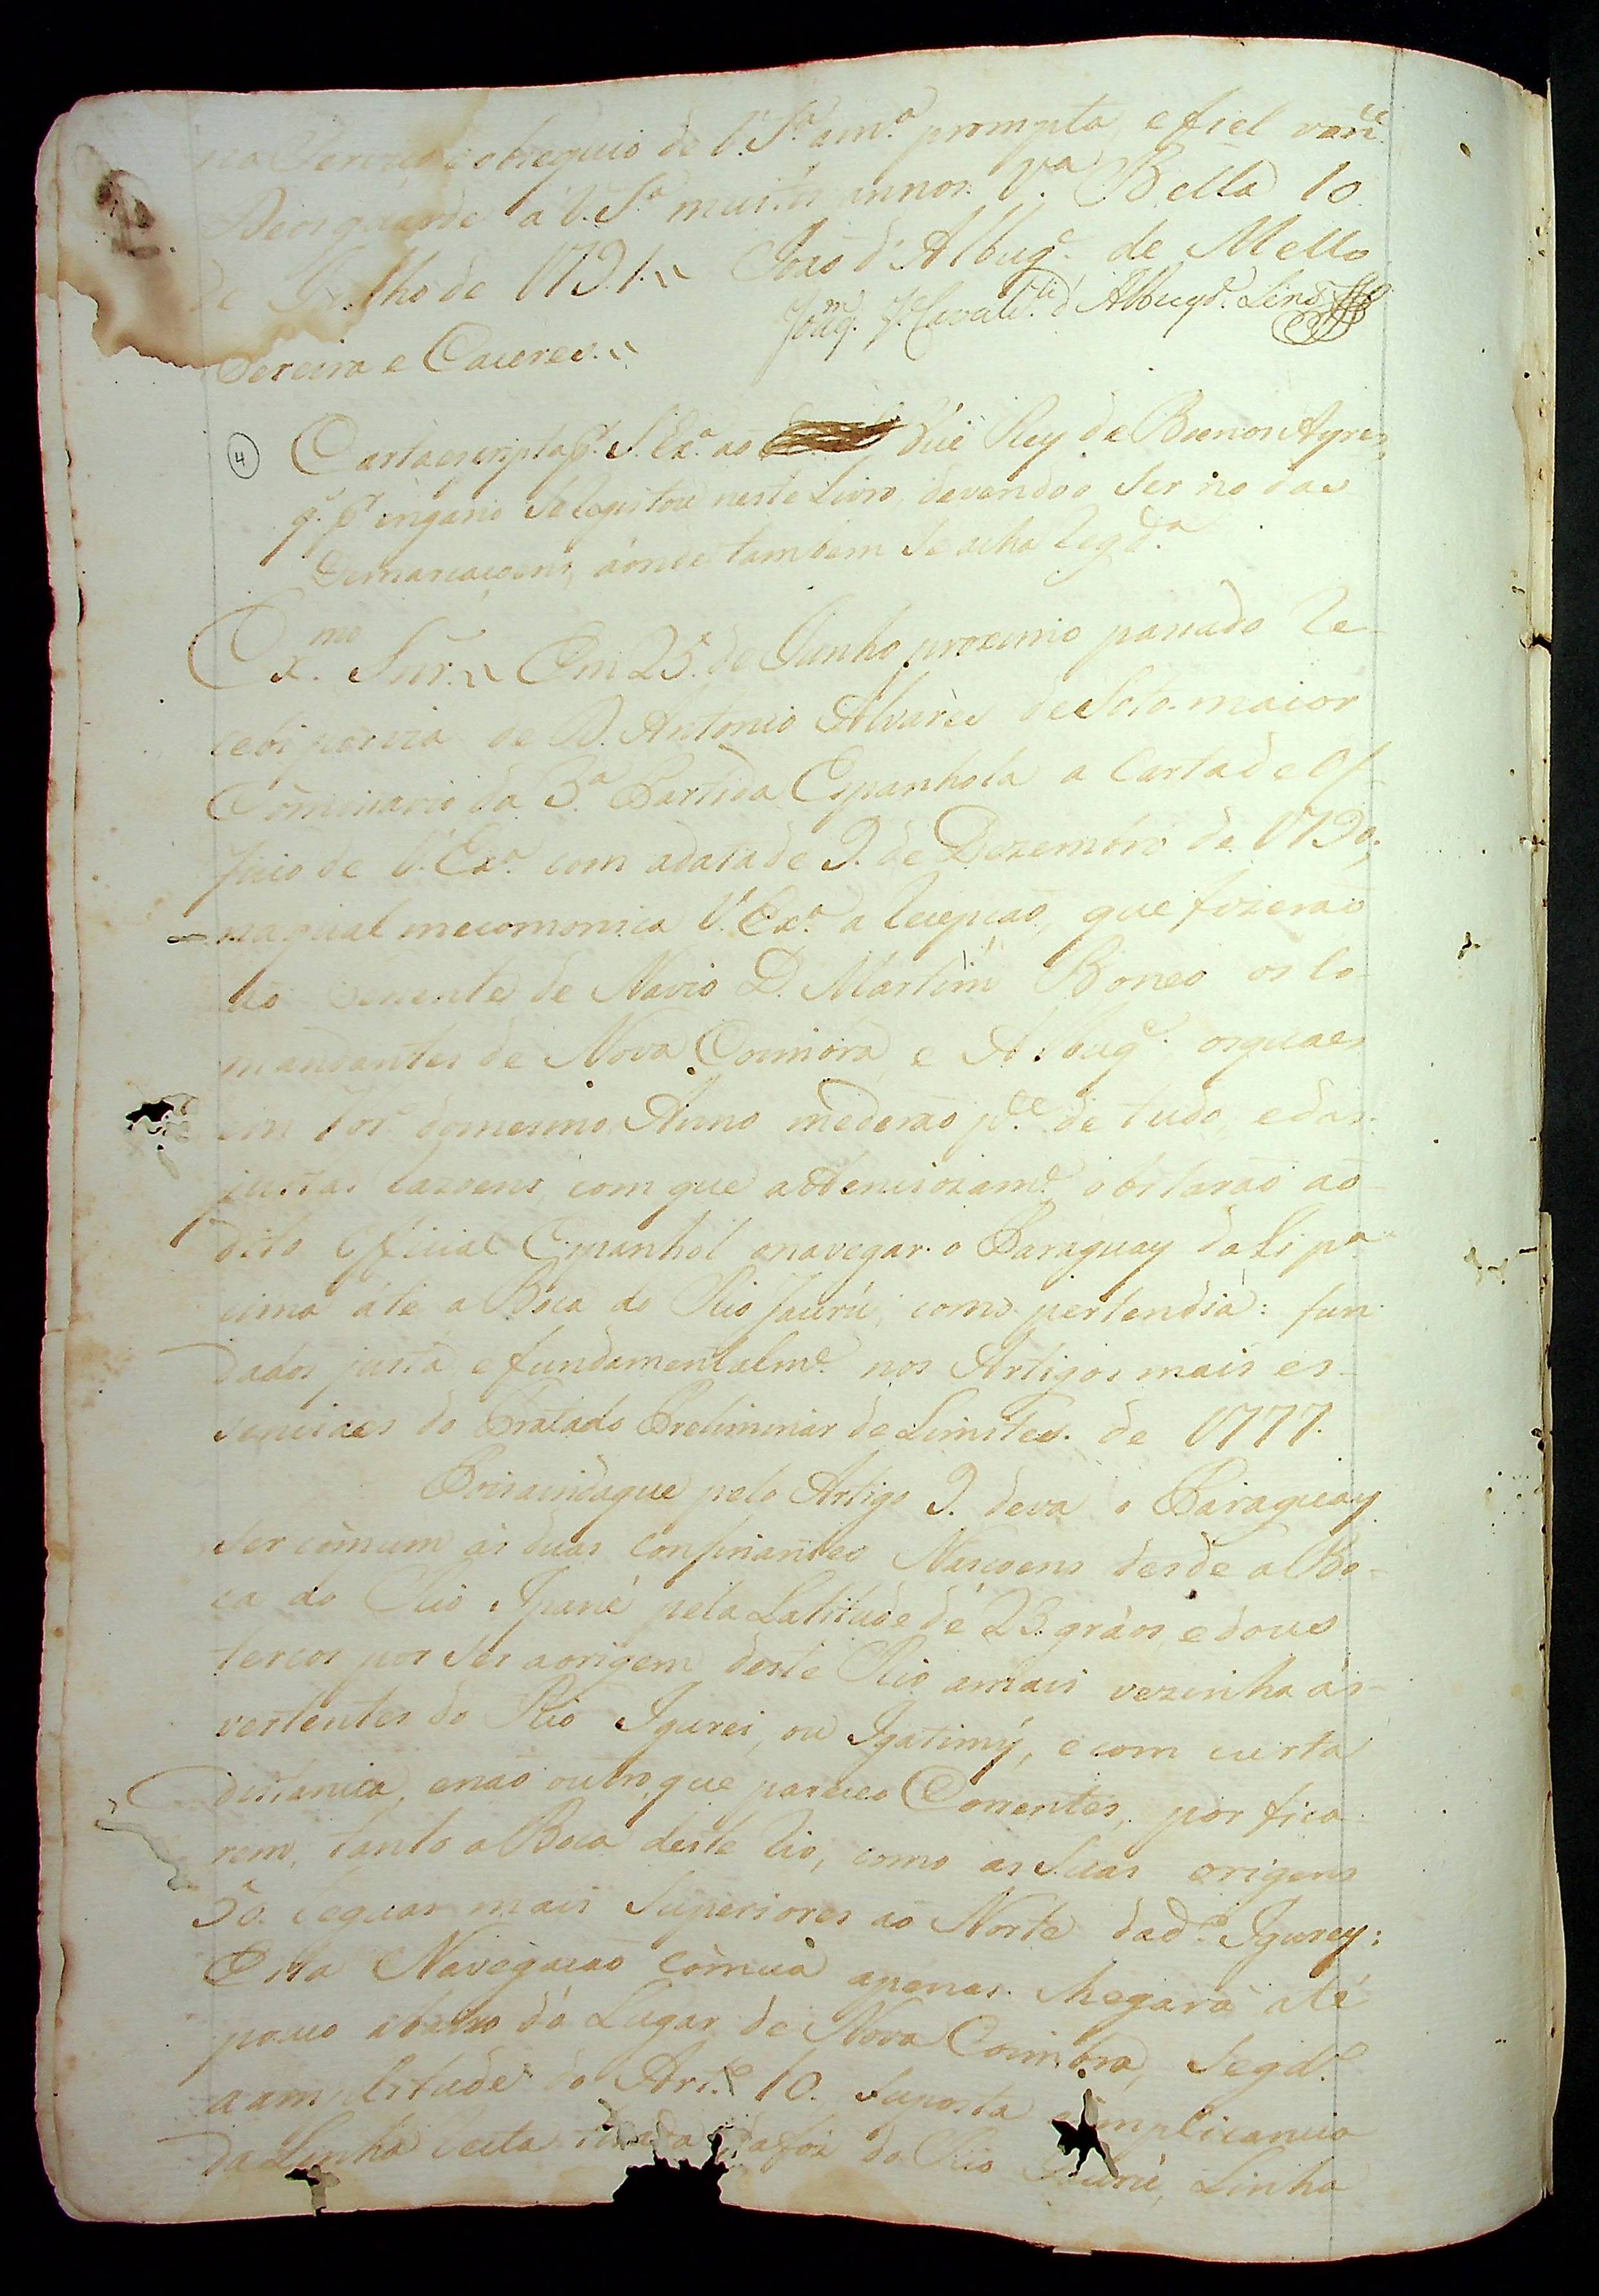 obzequio de V. S.ª a m.ª prompta, e fiel vont.e
Deos guarde a V. S.ª muitos annos. V.ª Bella 10
de Julho de 1791.,, João d'Albuq.e de Mello
Pereira e Caceres.,,
Joaq.m J.e Cavalc.ti d'Albuq.e Lins
4
Carta escripta p.r S. Ex.ª ao Vice Rey de Buenos Ayres,
q. p.r engano se legistou neste Livro, devendo o ser no das
Demarcaçoens, aonde tambem se acha Leg.da
Ex.mo Snr.,, Em 25 de Junho proximo passado Re-
cebi por via de D. Antonio Alvares de Soto-maior
Comissario da 3.ª Partida Espanhola a Carta de Of-
ficio de V. Ex.ª com a data de 9. de Dezembro de 1790,
na qual me comonica V. Ex.ª a Recepcaõ, que fizeraõ
ao Tenente de Navio D. Martim Boneo os Co-
mandantes de Nova Coimbra, e Albuq.e os quaes
em do mesmo Anno me deraõ p.te de tudo, e das
justas Razoens, com que attenciozam.e obstaraõ ao
dito Official Espanhol a navegar o Paraguay dali p.ª
cima athe a Boca do Rio Jaurú, como pertendia: fun
dados justa e fundamentalm.e nos Artigos mais es-
senciaes do Tratado Preliminar de Limites de 1777.
Pois ainda que pelo Artigo 9. deva o Paraguay
ser cómum ás duas Confinantes Nascoens desde a Bo-
ca do Rio Ipané pela Latitude de 23. gráos, e dous
tercos por ser a origem deste Rio a mais vezinha ás
vertentes do Rio Igurei, ou Igatimý, e com curta
distancia, e naõ outro, que parece o Correntes, por fica-
rem, tanto a Boca deste Rio, como as Suas origens
50. Legoas mais Superiores ao Norte da d.ª Igurey:
Esta Navegaçaõ cómua apenas chegará até
pouco abaixo do Lugar de Nova Coimbra, Segd.º
a amplitude do Art.º 10. suposta complicancia
da Linha Recta da foz do Rio Jaurú, Linha